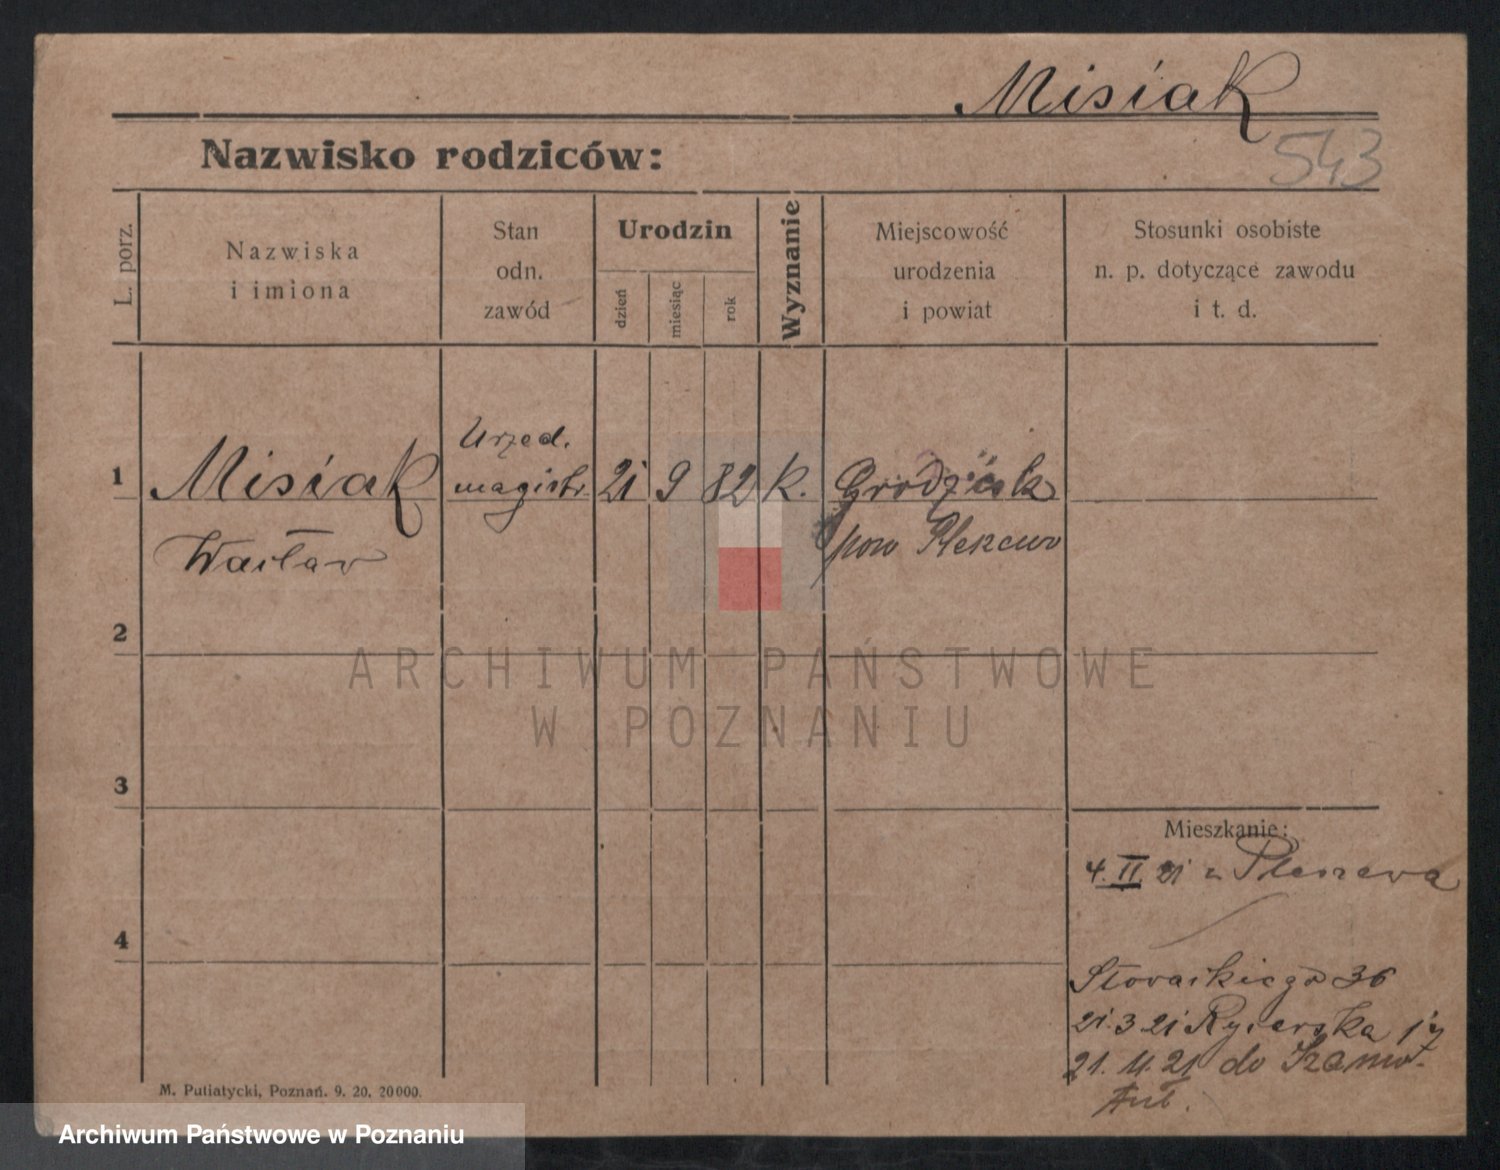 Misiak
Nazwisko rodziców:
543
L. porz.
Nazwiska
i imiona
Stan
odn.
zawód
Urodzin
dzień
miesiąc
rok
Wyznanie
Miejscowość
urodzenia
i powiat
Stosunki osobiste
n. p. dotyczące zawodu
i t. d.
1
Misiak
Wacław
Urzęd.
magistr.
21
9
82
k.
Grodzisk
pow Pleszew
2
3
4
Mieszkanie:
4. II. 21 z Pleszewa
Słowackiego 36
21.3 21 Rycerska 17
21. 11. 21 do Szamo-
tuł.
M. Putiatycki, Poznań. 9. 20. 20000.
ARCHIWUM PAŃSTWOWE
W POZNANIU
Archiwum Państwowe w Poznaniu